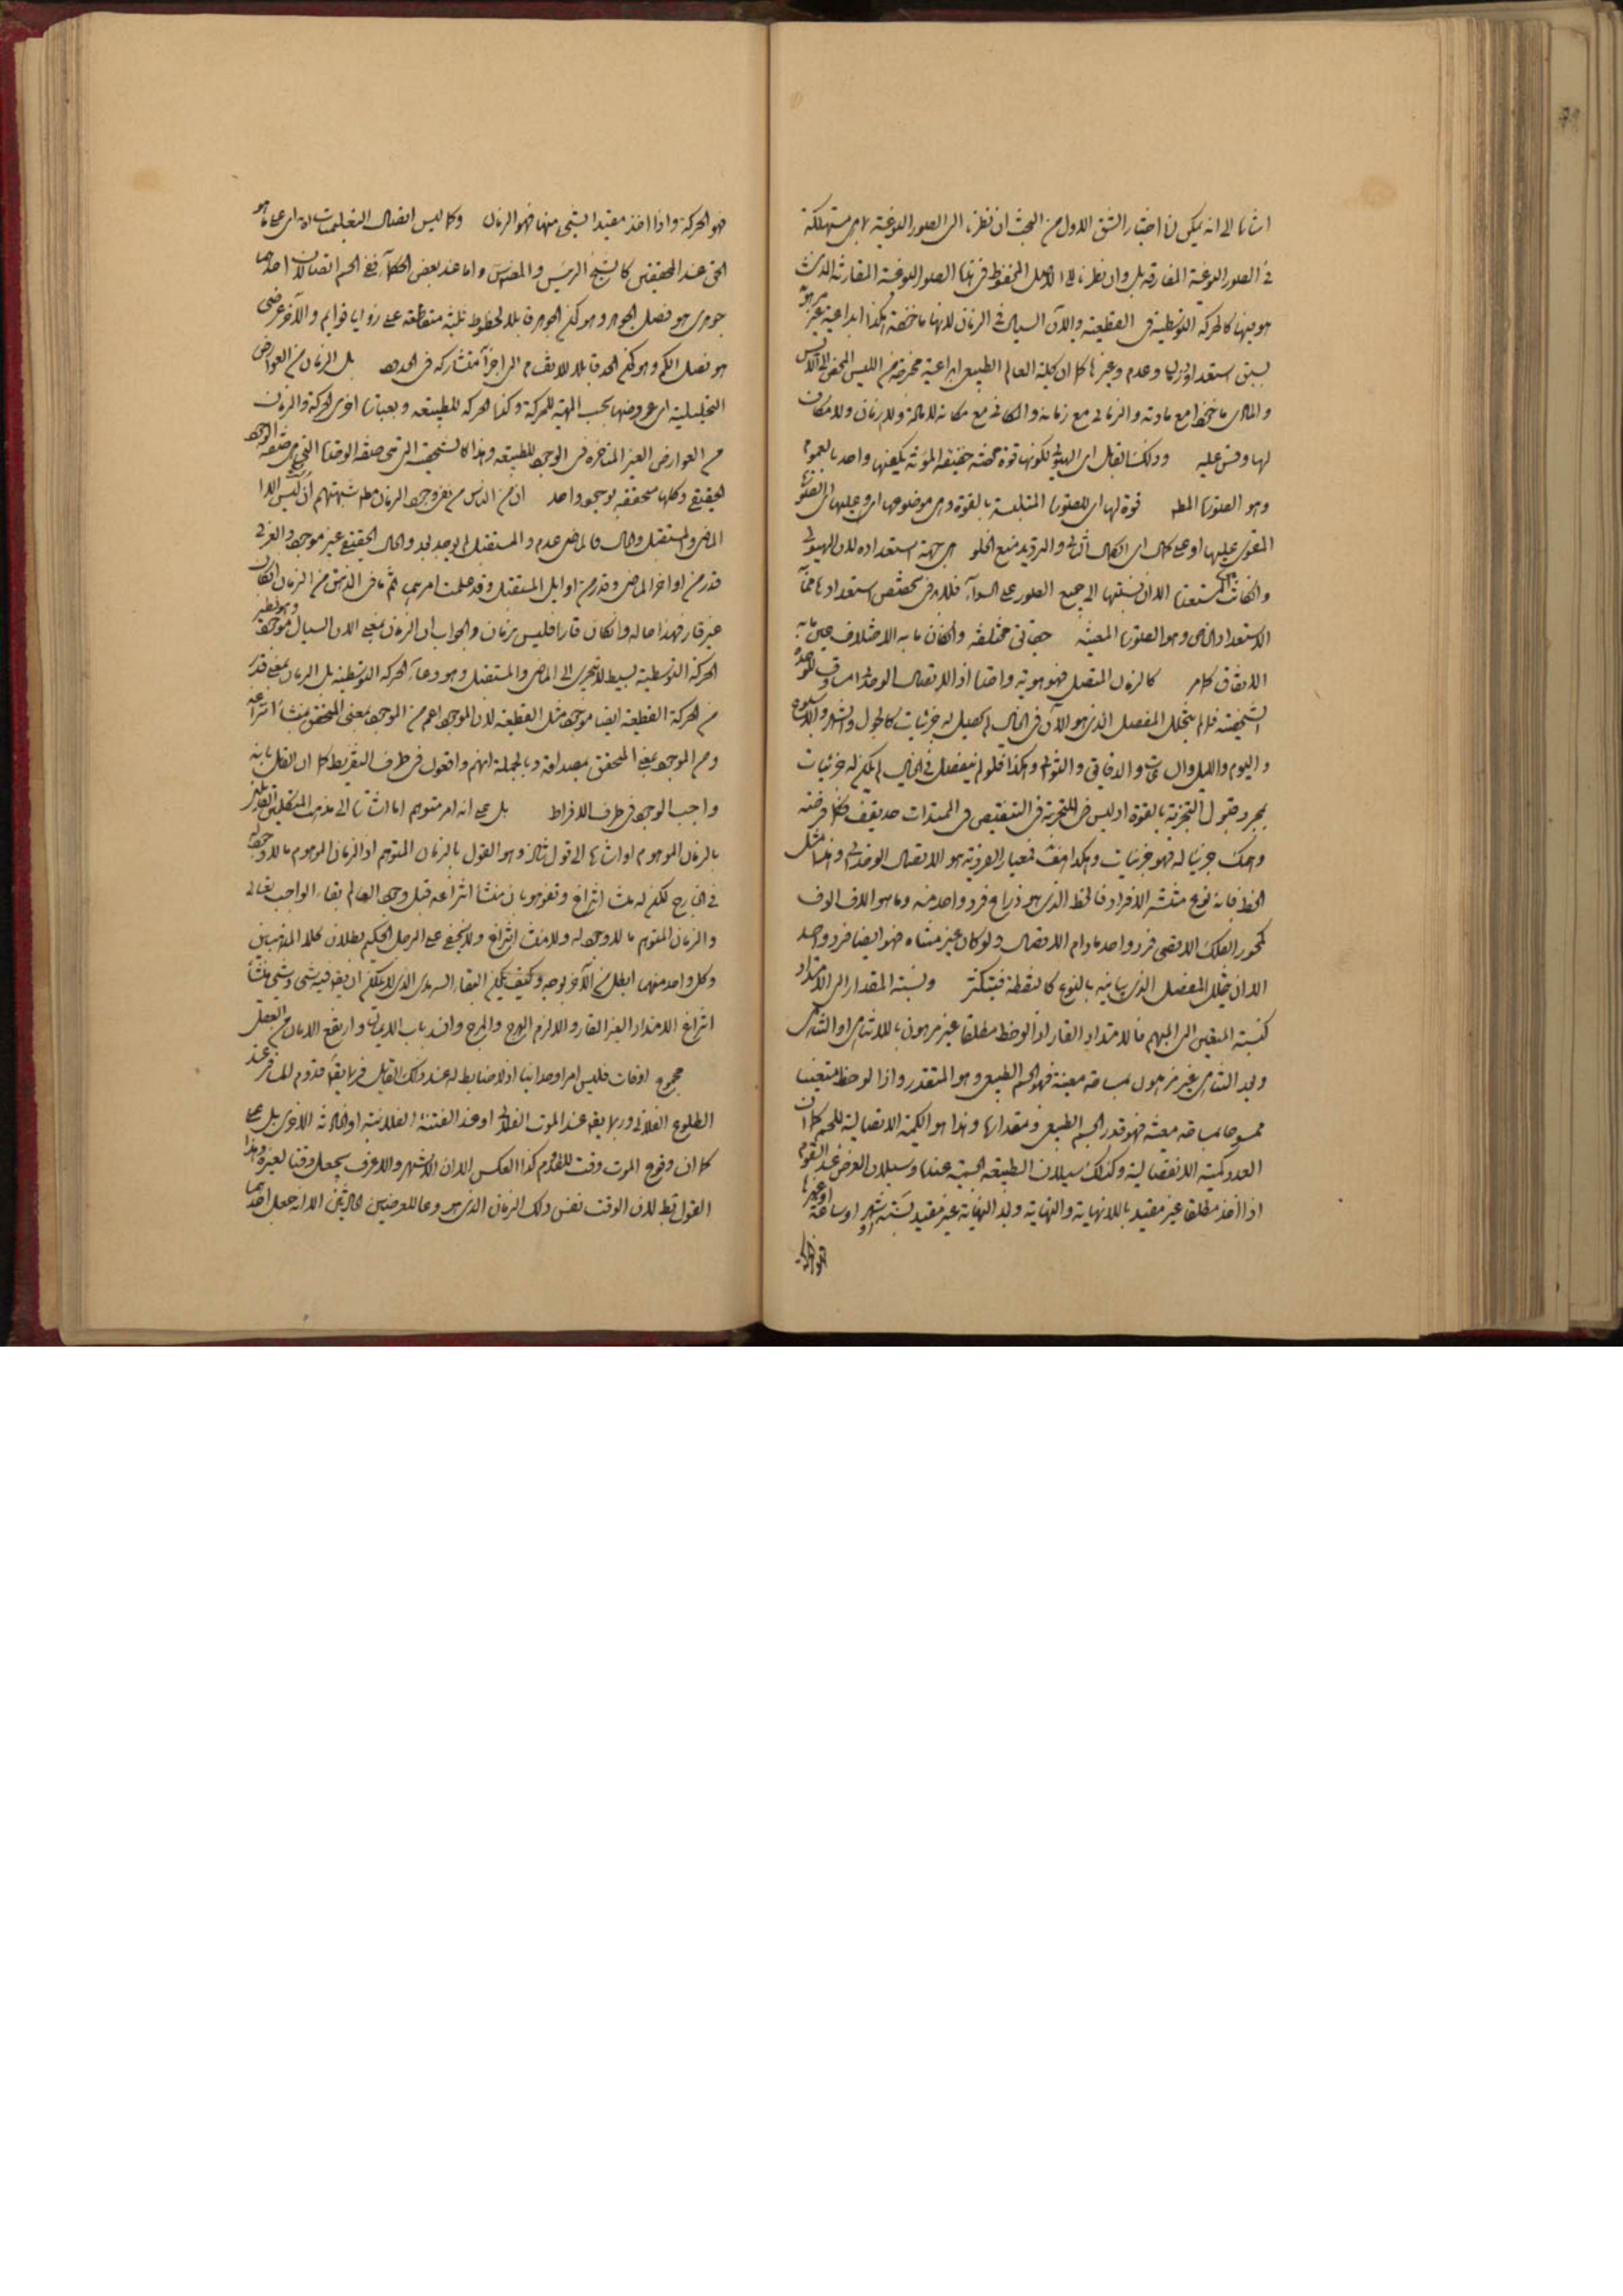 اشارة الى انه يمكن لنا اختيار الشق الاول من البحث ان نظرنا الى الصور النوعية لا هى مستهلكة
فى الصور النوعية المفارقة بل وان نظرنا الى الاصل المحفوظ فى هذه الصور النوعية المقارنة الذى
هويتها كالحركة التوسطية فى القطعية والآن السيال فى الزمان لانها ماخوذة هكذا ابداعية غير
بسبق استعداد وزمان وعدم وغيرها كما ان كلية العالم الطبيعى ابداعية مخرجة من الليس المحض الى الايس
والمادى ماخوذ مع مادته والزمانى مع زمانه والمكانى مع مكانه لا مادة ولا زمان ولا مكان
لها وقس عليه وذلك القابل اى الهيولى لكونها قوة محضة حقيقة المؤنة يكفيها واحد بالعموم
وهو الصورة المطلقة قوة لها اى للصورة المتلبسة بالقوة وهى موضوعها اى وعليها اى الصورة
المقوى عليها او على كمال اى الكمال الثانى والترديد لمنع الخلو اى جهة استعداده لان الهيولى
وان كانت مستعدة الا ان نسبتها الى جميع الصور على السواء فلا بد فى تخصص استعدادها من
الاستعداد الخاص وهو الصورة المعينة حقايق مختلفة وان كان ما به الاختلاف عين ما به
الاتفاق كما مر كالزمان المتصل فهو هوية واحدة اذ الاتصال الوحدانى مساوق للوحدة
الشخصية فما لم يتخلل المفصل الذى هو الآن فى الخيال لم يحصل له جزئيات كالحول والشهر والاسبوع
واليوم والليل والساعات والدقايق والثوانى وهكذا فلو لم ينفصل فى الخيال لم يكن له جزئيات
بمجرد قبول التجزية بالقوة اذ ليس فى التجزية فى التنقيص فى الممتدات حد يقف فكلما فرضته
وهمك جزئيا له فهو جزئيات وهكذا فمعيار الفردية هو الاتصال الوحدانى وهذا مثل
الخط فانه نوع منتشر الافراد فالخط الذى هو ذراع فرد واحد منه وما هو الاف الوف
كمحور الفلك الاقصى فرد واحد مادام الاتصال ولو كان غير متناه فهو ايضا فرد واحد
الا ان يتخلل المفصل الذى يباينه بالنوع كالنقطة فيتكثر ونسبة المقدار الى الامتداد
كنسبة المتعين الى المبهم فالامتداد القار اذا لوحظ مطلقا غير مرهون باللاتناهى او التناهى
وبعد التناهى غير مرهون بمساحة معينة فهو الجسم الطبيعى وهو المتقدر واذا لوحظ متعينا
ممسوحا بمساحة معينة فهو قدر الجسم الطبيعى ومقدارها وهذا هو الكمية الاتصالية للجسم كما ان
العدد كمية الانفصالية وكذلك سيلان الطبيعة الجسمية عندنا وسيلان العرض عند القوم
اذا اخذ مطلقا غير مقيد باللانهاية والنهاية وبعد النهاية غير مقيد بسنة او شهر او ساعة او غيرها
فهو الحركة واذا اخذ مقيدا بشئ منها فهو الزمان وكما ليس اتصال التعليمات له اى على ما هو
الحق عند المحققين كالشيخ الرئيس والمصنف واما عند بعض الحكماء ففى الجسم اتصالان احدهما
جوهرى هو فصل الجوهر وهو كون الجوهر قابلا لخطوط ثلثة متقاطعة على زوايا قوايم والآخر عرضى
هو فصل الكم وهو كون الحد قابلا للانقسام الى اجزاء متشاركة فى الحدود بل الزمان من العوارض
التحليلية اى عروضها بحسب المهية للحركة وكذا الحركة للطبيعة وبعبارة اخرى الحركة والزمان
من العوارض الغير المتاخرة فى الوجود للطبيعة وهذا كالتشخص التى هى صفة الوجود
الحقيقى وكلها متحققة بوجود واحد ان من الناس من نفى وجود الزمان مطلقا شبهتهم ان ليس الا
الماضى والمستقبل والحال فالماضى عدم والمستقبل لم يوجد بعد والحال الحقيقى غير موجود والعرفى
قدر من اواخر الماضى وقدر من اوايل المستقبل وقد علمت امرهما ثم ما فى الذهن من الزمان ان كان
غير قار فهذا حاله وان كان قارا فليس بزمان والجواب ان الزمان بمعنى الان السيال موجود وهو نظير
الحركة التوسطية بسيط لا يتجزى الى الماضى والمستقبل وهو وعاء الحركة التوسطية بل الزمان بمعنى قدر
من الحركة القطعية ايضا موجود مثل القطعية لان الموجود اعم من الموجود بمعنى المتحقق بمنشأ انتزاعه
ومن الموجود بمعنى المتحقق بمصداقه وبالجملة انهم واقعون فى طرف التفريط كما ان القايل بانه
واجب الوجود فى طرف الافراط بل على انه امر متوهم اما اشارة الى مذهب المتكلمين القايلين
بالزمان الموهوم او اشارة الى قول ثالث وهو القول بالزمان المتوهم اذ الزمان الموهوم ما لا وجود له
فى الخارج لكن له منشأ انتزاع وتفوهوا بان منشأ انتزاعه قبل وجود العالم بقاء الواجب تعالى
والزمان المتوهم ما لا وجود له ولا منشأ انتزاع ولا يخفى على الرجل الحكيم بطلان كلا المذهبين
وكل واحد منهما ابطل من الآخر بوجه وكيف يكون البقاء السرمدى الذى لا يمكن ان يقع فيه شئ وشئ منشأ
انتزاع الامتداد الغير القار والا لزم الهرج والمرج وانسد باب الديانة وارتفع الامان من العقل
مجموع اوقات فليس امرا وحدانيا اذ لا ضابط له عند ذلك القايل فربما يقع قدوم المسافر عند
الطلوع الفلانى وربما يقع عند الموت الفلانى او عند الفتنة الفلانية او الحادثة الاخرى بل على
كما ان وقوع الموت وقت للقدوم كذا العكس الا ان الاشهر والاعرف يجعل وقتا لغيره وهذا
القول قط لان الوقت نفس ذلك الزمان الذى هو وعاء للعرضيين الحادثين الا انه جعل احدهما